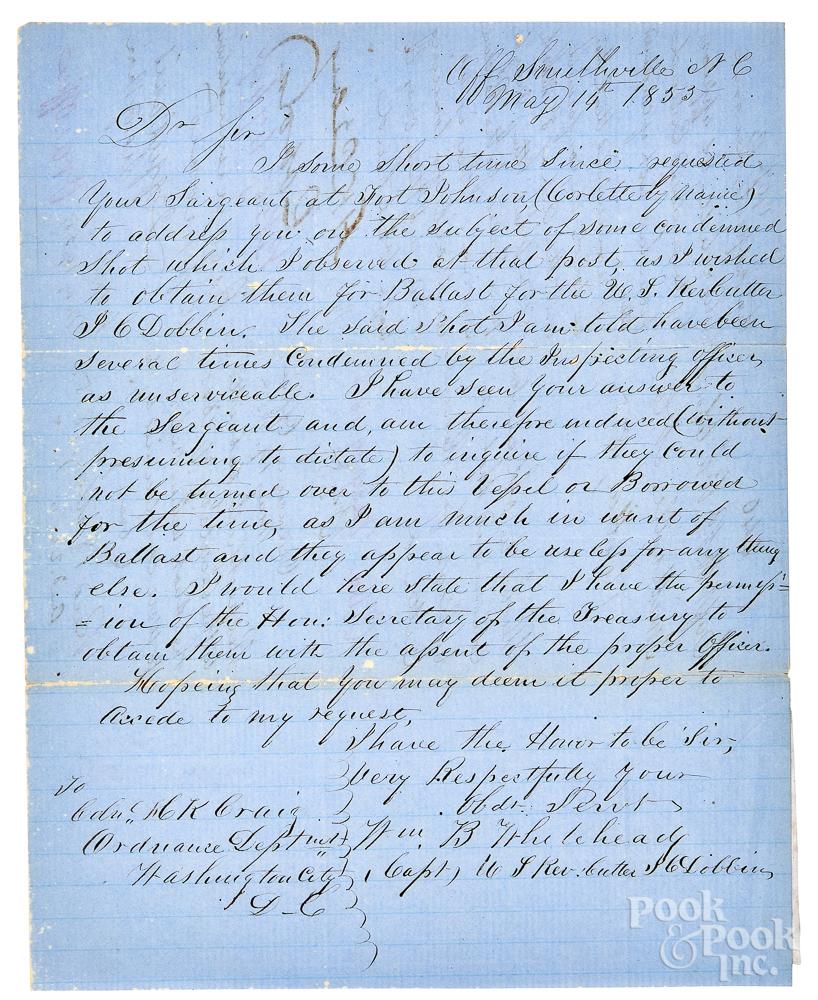 Off Smithville N C
May 14th 1855
Dr Sir
I some short time since requested
Your Sargeant at Fort Johnson (Corlette by name)
to address you on the subject of some condemned
Shot which I observed at that post, as I wished
to obtain them for Ballast for the U. S. Rev Cutter
J C Dobbin. The said Shot, I am told have been
several times Condemned by the Inspecting officer
as unserviceable. I have seen your answer to
the Sergeant and, am therefore induced (without
presuming to dictate) to inquire if they could
not be turned over to this Vessel or Borrowed
for the time, as I am much in want of
Ballast and they appear to be useless for any thing
else. I would here State that I have the permiss=
=ion of the Hon: Secretary of the Treasury to
obtain them with the assent of the proper Officer.
Hopeing that you may deem it proper to
Accede to my request,
I have the Honor to be Sir,
Very Respectfully Your
Obdt Servt
Wm. B Whitehead
(Capt) U S Rev. Cutter J C Dobbin
To
H K Craig
Ordnance Deptmnt
Washington City
D-C
POOK
& POOK
Inc.